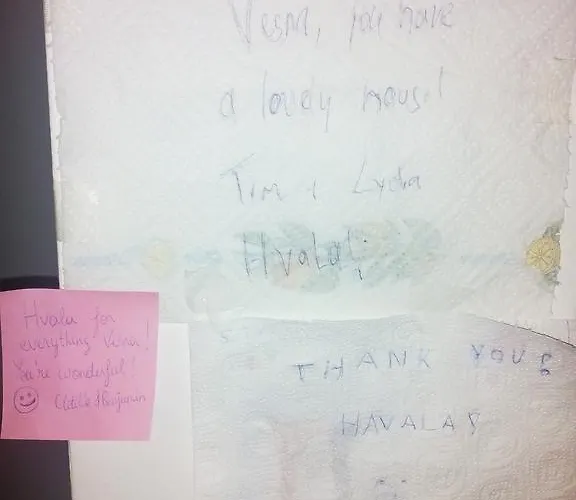 Vesna, you have
a lovely house!
Tim + Lydia
Hvala!
Hvala for
everything Vesna!
You're wonderful!
& Benjamin
THANK YOU!
HAVALA!